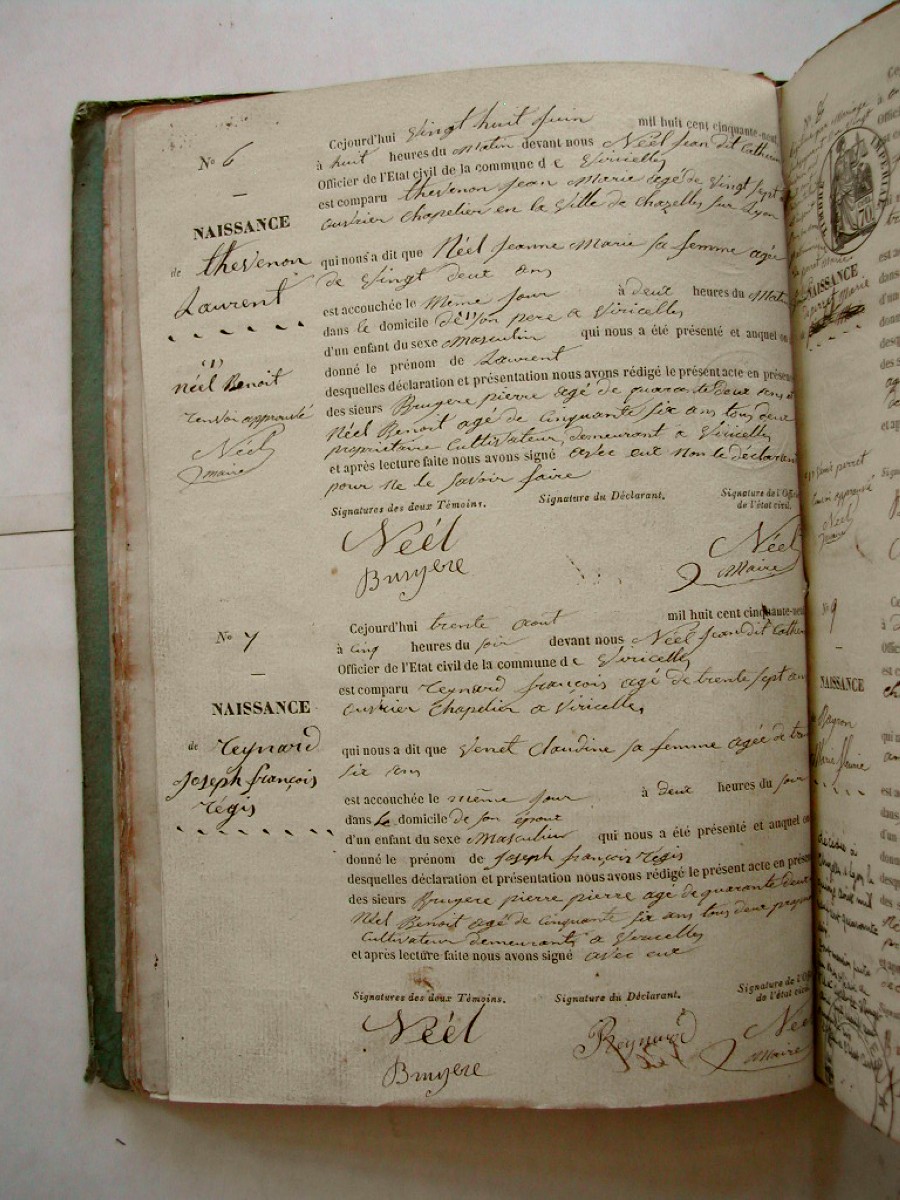 Nº 6
NAISSANCE
de thevenon
Laurent
(1)
néel Benoit
renvoi approuvé
Néel
maire
Cejourd'hui vingt huit juin mil huit cent cinquante-neuf
à huit heures du matin devant nous Néel Jean dit Catherin
Officier de l'Etat civil de la commune de Viricelles
est comparu thevenon Jean Marie agé de vingt sept
ouvrier chapelier en la ville de Chazelles sur Lyon
qui nous a dit que Néel Jeanne Marie sa femme agée
de vingt deux ans
est accouchée le même jour à deux heures du matin
dans le domicile de (1) son pere a Viricelles
d'un enfant du sexe masculin qui nous a été présenté et auquel on
donné le prénom de Laurent
desquelles déclaration et présentation nous avons rédigé le présent acte en présen
des sieurs Bruyere pierre agé de quarante deux ans et
Néel Benoit agé de cinquante six ans tous deux
proprietaire cultivateur demeurant a Viricelles
et après lecture faite nous avons signé avec eux non le déclarant
pour ne le savoir faire
Signatures des deux Témoins. Signature du Déclarant. Signature de l'Offic
de l'état civil.
Néel
Bruyere
Néel
Maire
Nº 7
NAISSANCE
de reynard
Joseph françois
régis
Cejourd'hui trente aout mil huit cent cinquante-neuf
à cinq heures du soir devant nous Néel Jean dit Cather
Officier de l'Etat civil de la commune de Viricelles
est comparu reynard françois agé de trente sept ans
ouvrier chapelier a Viricelles
qui nous a dit que Venet Claudine sa femme agée de tre
six ans
est accouchée le même jour à deux heures du soir
dans le domicile de son epoux
d'un enfant du sexe Masculin qui nous a été présenté et auquel on
donné le prénom de Joseph françois régis
desquelles déclaration et présentation nous avons rédigé le présent acte en présen
des sieurs Bruyere pierre pierre agé de quarante deux
Néel Benoit agé de cinquante six ans tous deux propri
cultivateur demeurants a Viricelles
et après lecture faite nous avons signé avec eux
Signatures des deux Témoins. Signature du Déclarant. Signature de l'O
de l'état civil
Néel
Bruyere
Reynard
Née
Maire
TIMBRE IMPERIAL
70
NAISSANCE
Nº 9
NAISSANCE